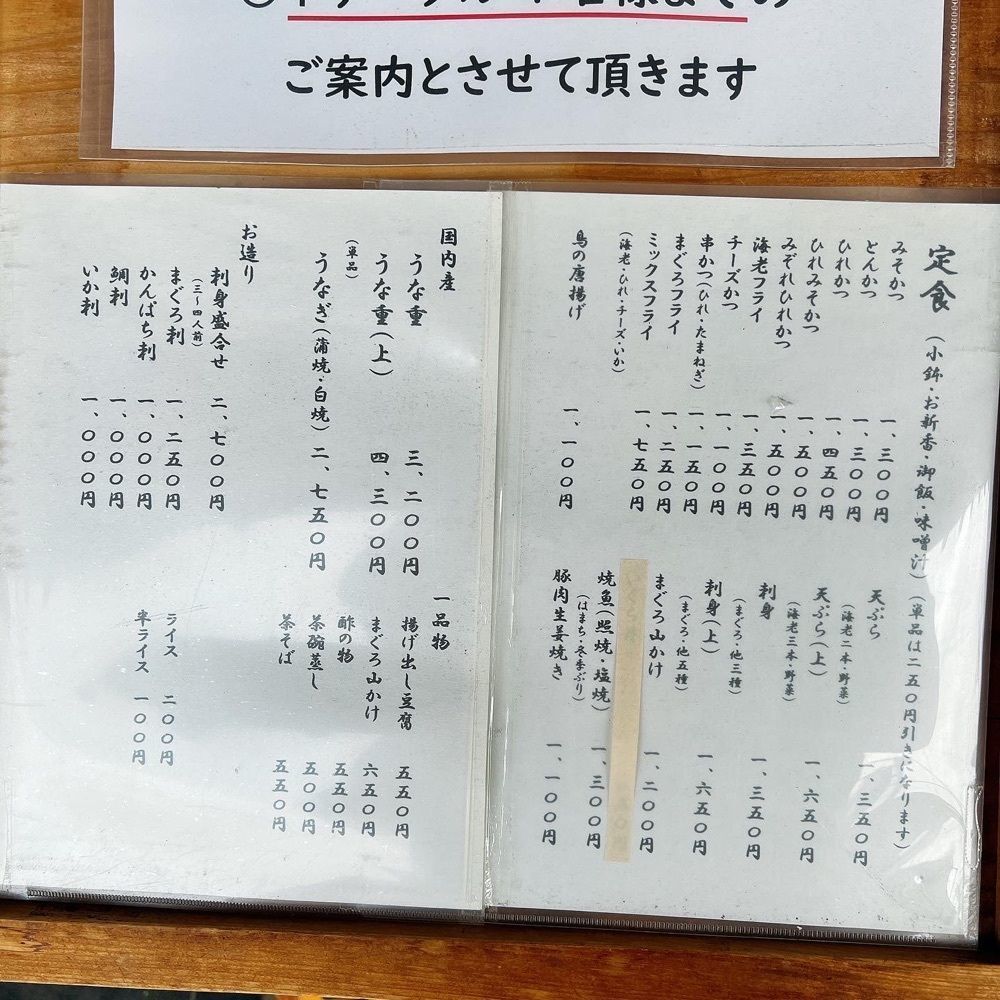 ご案内とさせて頂きます
定食（小鉢・お新香・御飯・味噌汁）（単品は二五〇円引きになります）
みそかつ 一、三〇〇円
とんかつ 一、三〇〇円
ひれかつ 一、四五〇円
ひれみそかつ 一、五〇〇円
みぞれひれかつ 一、五〇〇円
海老フライ 一、三五〇円
チーズかつ 一、一〇〇円
串かつ（ひれ・たまねぎ） 一、一五〇円
まぐろフライ 一、二五〇円
ミックスフライ 一、七五〇円
（海老・ひれ・チーズ・いか）
鳥の唐揚げ 一、一〇〇円
天ぷら 一、三五〇円
（海老二本・野菜）
天ぷら（上） 一、六五〇円
（海老三本・野菜）
刺身 一、三五〇円
（まぐろ・他三種）
刺身（上） 一、六五〇円
（まぐろ・他五種）
まぐろ山かけ 一、二〇〇円
焼魚（照焼・塩焼） 一、三〇〇円
（はまち・冬季ぶり）
豚肉生姜焼き 一、一〇〇円
国内産
うな重 三、二〇〇円
うな重（上） 四、三〇〇円
（単品）
うなぎ（蒲焼・白焼） 二、七五〇円
お造り
刺身盛合せ 二、七〇〇円
（三〜四人前）
まぐろ刺 一、二五〇円
かんぱち刺 一、〇〇〇円
鯛刺 一、〇〇〇円
いか刺 一、〇〇〇円
一品物
揚げ出し豆腐 五五〇円
まぐろ山かけ 六五〇円
酢の物 五五〇円
茶碗蒸し 五〇〇円
茶そば 五五〇円
ライス 二〇〇円
半ライス 一〇〇円